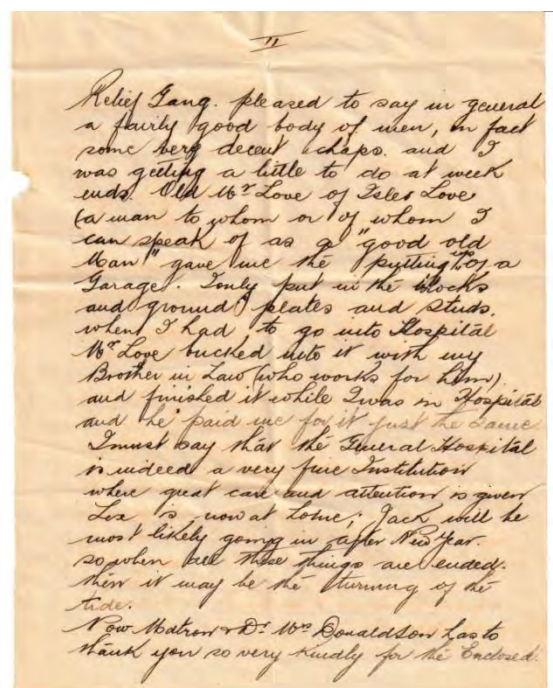 II
Relief Gang. pleased to say in general
a fairly good body of men, in fact
some very decent chaps. and I
was getting a little to do at week
ends. Old Mr Love of Isles Love
(a man to whom or of whom I
can speak of as a "good old
Man" gave me the putting up of a
Garage. I only put in the blocks
and ground plates and studs.
when I had to go into Hospital
Mr Love bucked into it with my
Brother in Law (who works for him)
and finished it while I was in Hospital
and he paid me for it just the same
I must say that the General Hospital
is indeed a very fine Institution
where great care and attention is given
is now at home; Jack will be
most likely going in after New Year.
so when all these things are ended.
then it may be the turning of the
tide.
Now Matron & Dr Mrs Donaldson has to
thank you so very kindly for the Enclosed.